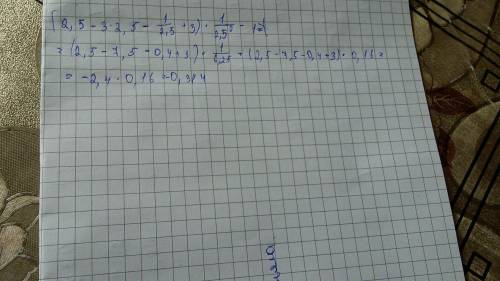 (2,5 - 3·2,5 - 1/2,5 + 3) · 1/2,5
= (2,5 - 7,5 - 0,4 + 3) · 1/6,25 = (2,5 - 7,5 - 0,4 + 3) · 0,16 =
= -2,4 · 0,16 = 0,384